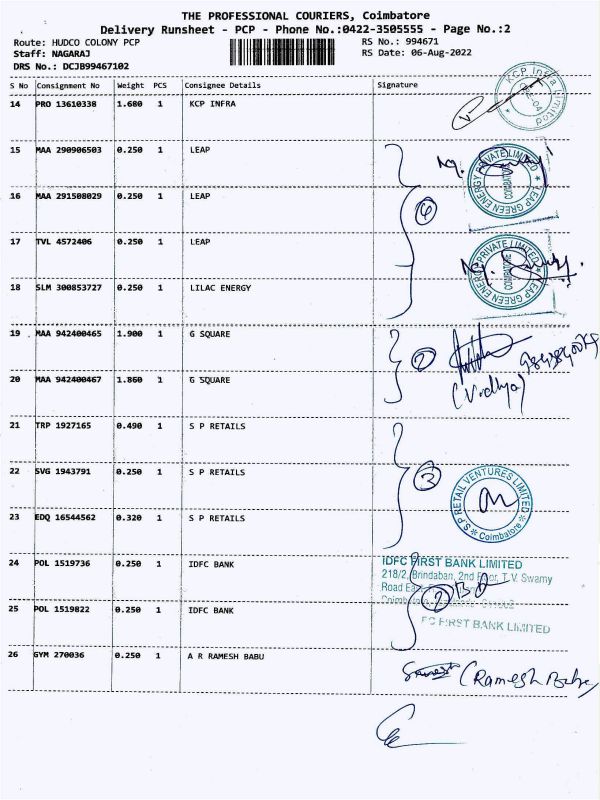 THE PROFESSIONAL COURIERS, Coimbatore
Delivery Runsheet - PCP - Phone No.:0422-3505555 - Page No.:2
Route: HUDCO COLONY PCP RS No.: 994671
Staff: NAGARAJ RS Date: 06-Aug-2022
DRS No.: DCJB99467102
S No Consignment No Weight PCS Consignee Details Signature
14 PRO 13610338 1.680 1 KCP INFRA
KCP Infra Limited
15 MAA 290906503 0.250 1 LEAP
LEAP GREEN ENERGY PRIVATE LIMITED
COIMBATORE
16 MAA 291508029 0.250 1 LEAP
4
17 TVL 4572406 0.250 1 LEAP
LEAP GREEN ENERGY PRIVATE LIMITED
COIMBATORE
18 SLM 300853727 0.250 1 LILAC ENERGY
19 MAA 942400465 1.900 1 G SQUARE
2
20 MAA 942400467 1.860 1 G SQUARE
(Vidhya)
21 TRP 1927165 0.490 1 S P RETAILS
22 SVG 1943791 0.250 1 S P RETAILS
3
S.P RETAIL VENTURES LIMITED
Coimbatore
23 EDQ 16544562 0.320 1 S P RETAILS
24 POL 1519736 0.250 1 IDFC BANK
IDFC FIRST BANK LIMITED
218/2, Brindaban, 2nd Floor, T.V. Swamy
Road East
2
25 POL 1519822 0.250 1 IDFC BANK
FC FIRST BANK LIMITED
26 GYM 270036 0.250 1 A R RAMESH BABU
(Ramesh Babu